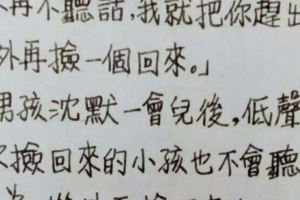 再不聽話,我就把你趕出
外再撿一個回來。」
男孩沈默一會兒後,低聲
撿回來的小孩也不會聽